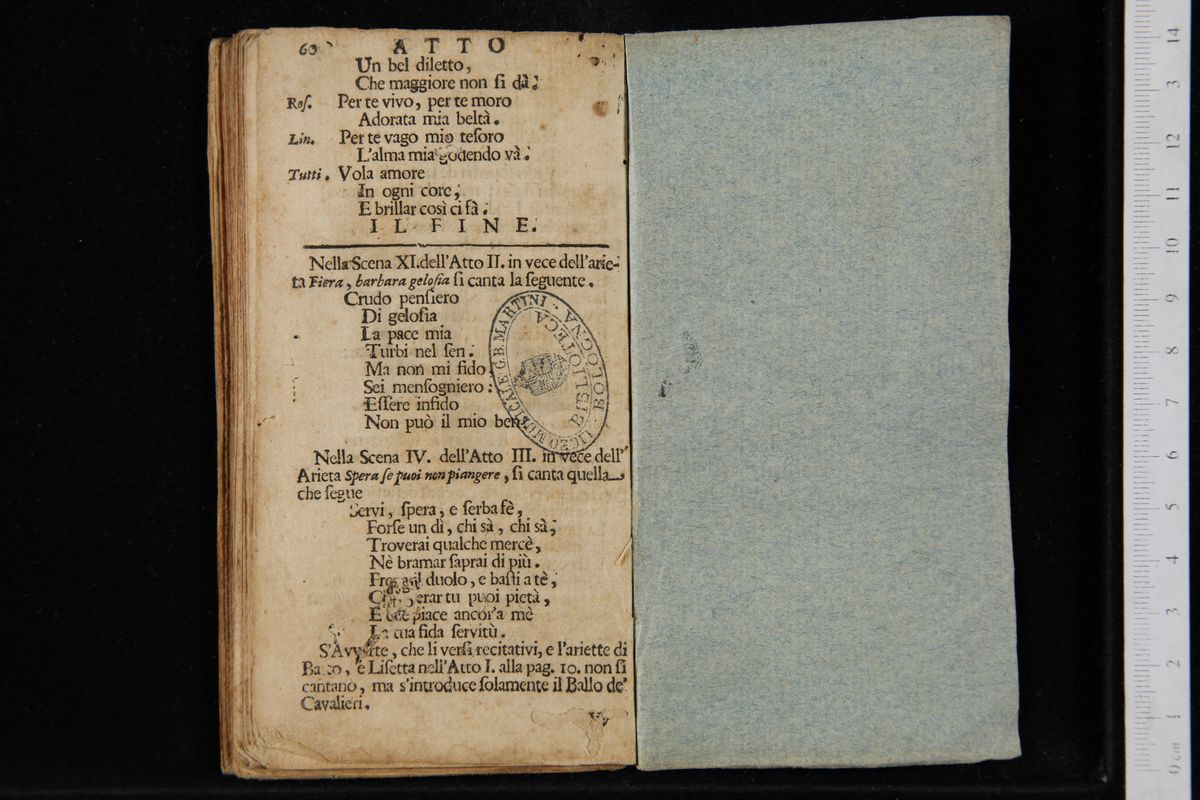 60 ATTO
Un bel diletto,
Che maggiore non ſi dà.
Roſ. Per te vivo, per te moro
Adorata mia beltà.
Lin. Per te vago mio teſoro
L'alma mia godendo và.
Tutti. Vola amore
In ogni core,
E brillar così ci fà.
IL FINE.
Nella Scena XI. dell'Atto II. in vece dell'arie-
ta Fiera, barbara geloſia ſi canta la ſeguente.
Crudo penſiero
Di geloſia
La pace mia
Turbi nel ſen.
Ma non mi fido
Sei menſogniero:
Eſſere infido
Non può il mio ben.
Nella Scena IV. dell'Atto III. in vece dell'
Arieta Spera ſe puoi non piangere, ſi canta quella
che ſegue
Servi, ſpera, e ſerba fè,
Forſe un dì, chi sà, chi sà,
Troverai qualche mercè,
Nè bramar ſaprai di più.
duolo, e baſti a tè,
tu puoi pietà,
E piace ancor'a mè
La tua fida ſervitù.
S'Avverte, che li verſi recitativi, e l'ariette di
e Liſetta nell'Atto I. alla pag. 10. non ſi
cantano, ma s'introduce ſolamente il Ballo de'
Cavalieri.
LICEO MUSICALE G.B. MARTINI · BOLOGNA ·
BIBLIOTECA
0cm 1 2 3 4 5 6 7 8 9 10 11 12 3 14